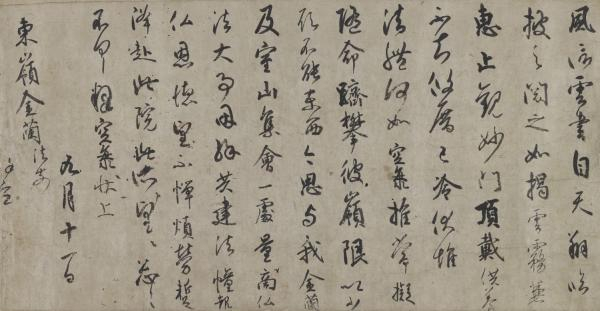 風信雲書自天翔臨
披之閲之如掲雲霧兼
恵止観妙門頂戴供養
不知攸厝已冷伏惟
法體何如空海推常擬
随命躋攀彼嶺限以少
願不能東西今思与我金蘭
及室山集會一處量商仏
法大事因縁共建法幢報
仏恩徳望不憚煩労蹔
降赴此院此所望々々忩々
不具釋空海状上
九月十一日
東嶺金蘭法前
謹空